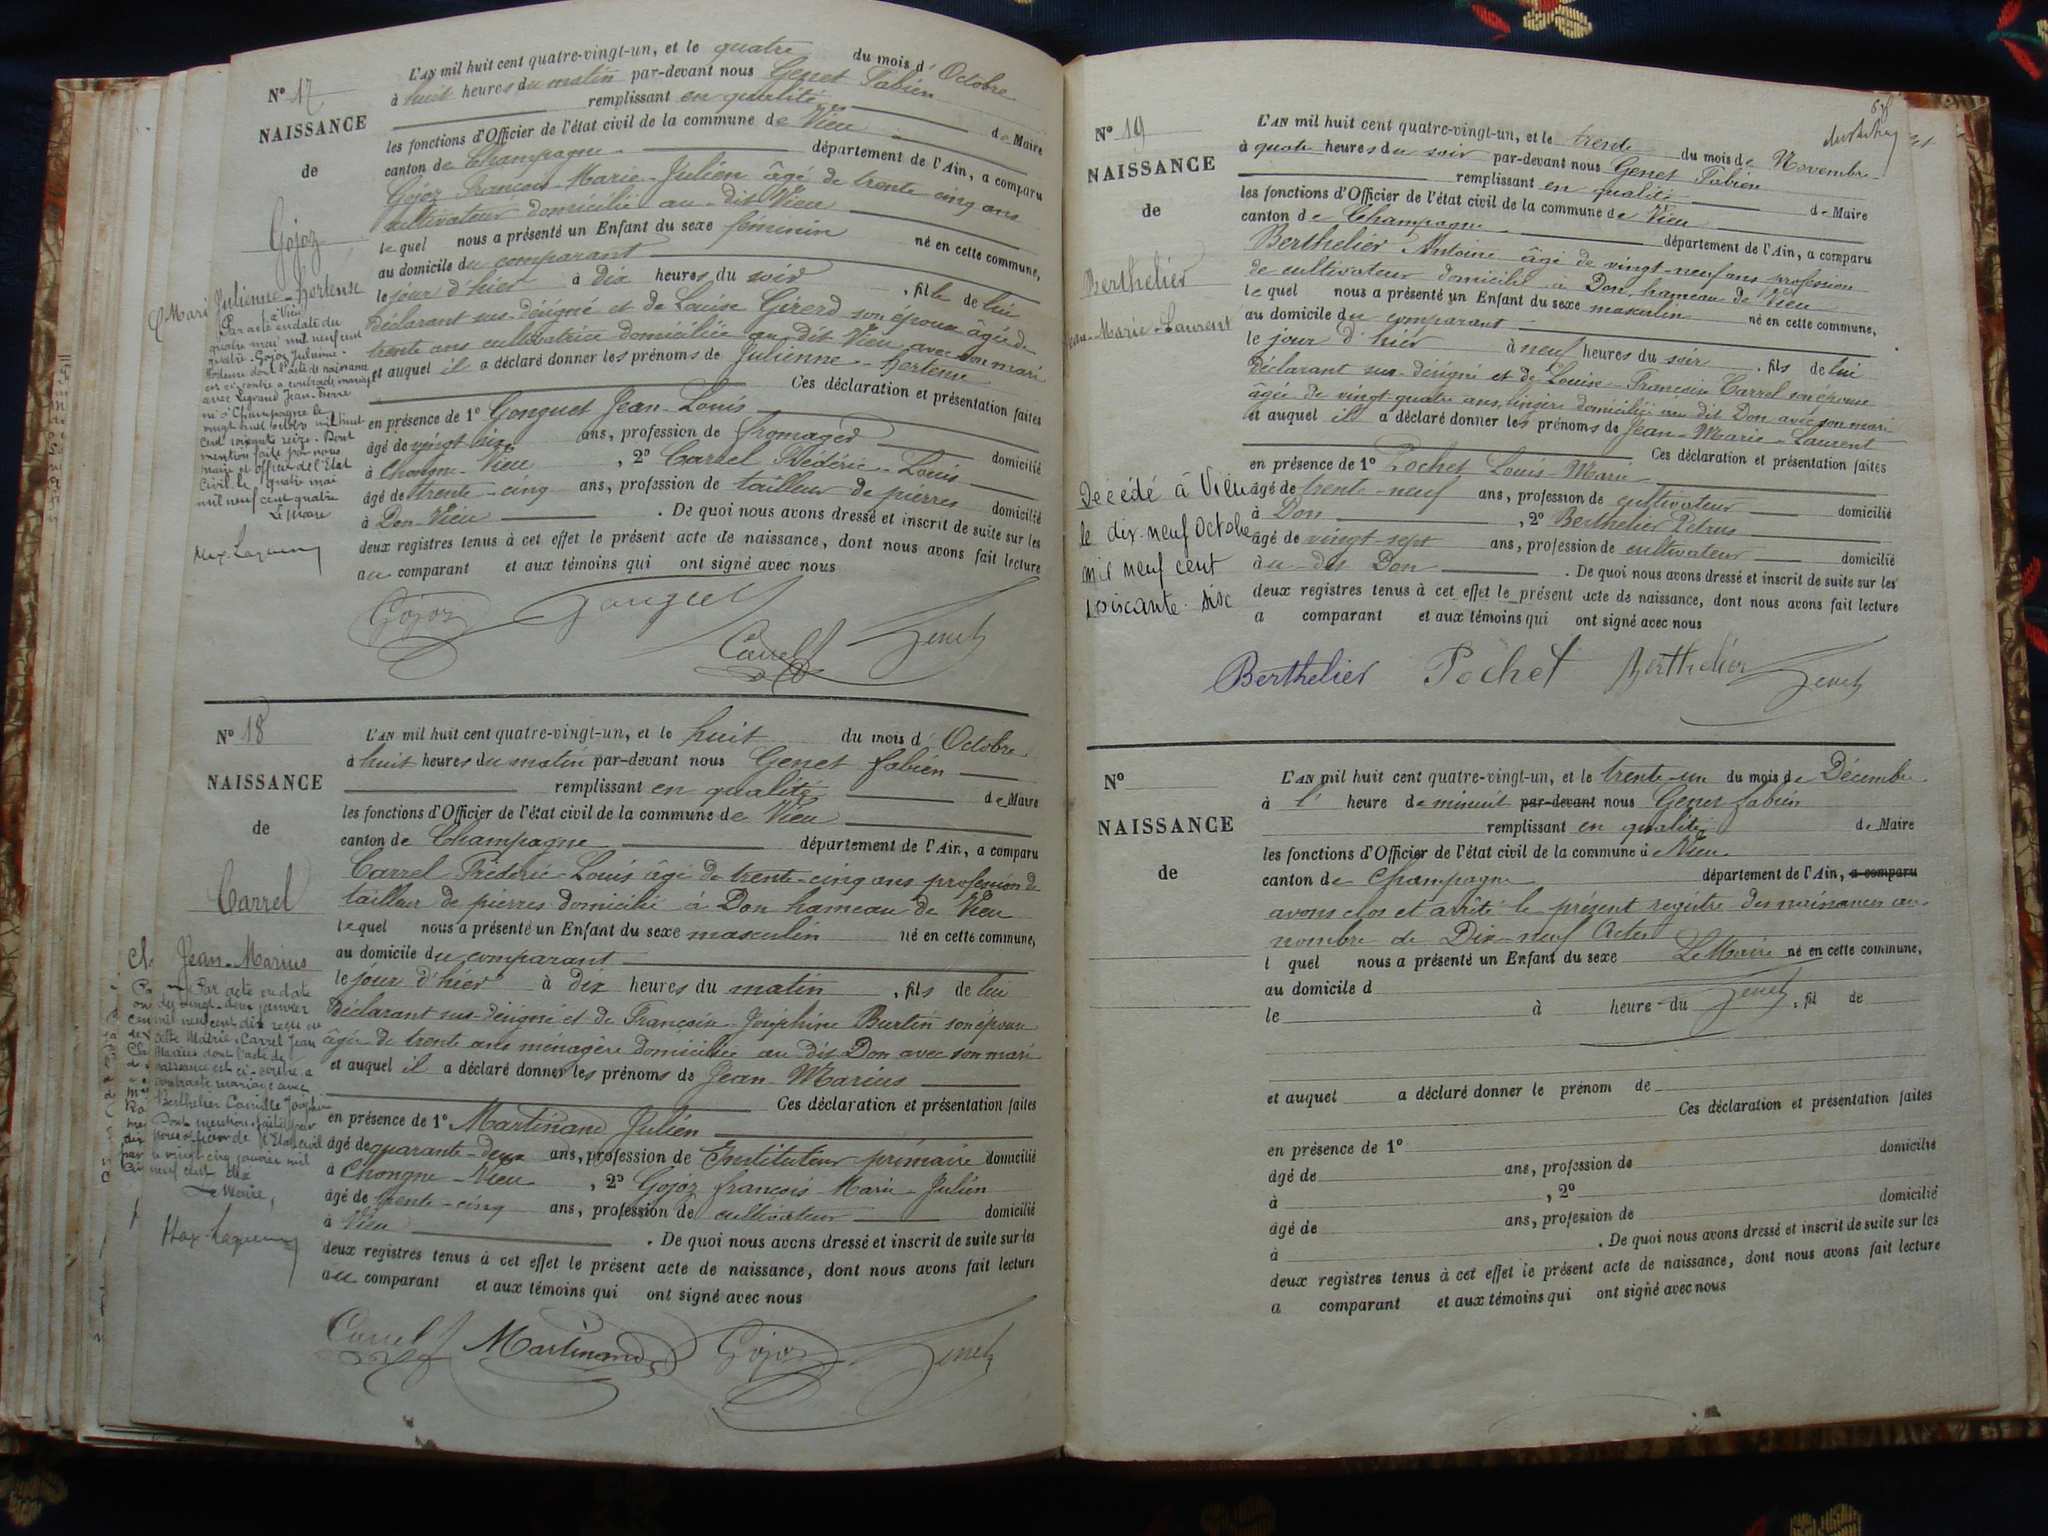 N° 17
NAISSANCE
de
Gojoz
Julienne-Hortense
Mari
à Vieu
Par acte en date du
quatre mai mil neuf cent
quatre Gojoz Julienne
Hortense dont l'acte de naissance
est ci-contre a contracté mariage
avec Legrand Jean-Pierre
né à Champagne le
vingt huit octobre mil huit
cent soixante seize. Dont
mention faite par nous
maire et officier de l'Etat
Civil le quatre mai
mil neuf cent quatre
Le Maire
L'AN mil huit cent quatre-vingt-un, et le quatre du mois d' Octobre
à huit heures du matin par-devant nous Genet Fabien
remplissant en qualité de Maire
les fonctions d'Officier de l'état civil de la commune de Vieu
canton de Champagne département de l'Ain, a comparu
Gojoz François-Marie-Julien âgé de trente cinq ans
cultivateur domicilié au dit Vieu
lequel nous a présenté un Enfant du sexe féminin né en cette commune,
au domicile du comparant
le jour d'hier à dix heures du soir, fille de lui
Déclarant sus-désigné et de Louise Girerd son épouse âgée de
trente ans cultivatrice domiciliée au dit Vieu avec son mari
et auquel il a déclaré donner les prénoms de Julienne-Hortense
Ces déclaration et présentation faites
en présence de 1° Gonguet Jean-Louis
âgé de vingt six ans, profession de fromager domicilié
à Chongne-Vieu, 2° Carrel Frédéric-Louis
âgé de trente-cinq ans, profession de tailleur de pierres domicilié
à Don-Vieu. De quoi nous avons dressé et inscrit de suite sur les
deux registres tenus à cet effet le présent acte de naissance, dont nous avons fait lecture
au comparant et aux témoins qui ont signé avec nous
Gojoz Gonguet
Carrel Genet
N° 18
NAISSANCE
de
Carrel
Jean-Marius
Par acte en date
du vingt-deux janvier
mil neuf cent dix reçu en
cette Mairie, Carrel Jean
Marius dont l'acte de
naissance est ci-contre a
contracté mariage avec
Berthelier Camille Joséphine
Dont mention faite par
nous officier de l'Etat civil
le vingt-cinq janvier mil
neuf cent dix
Le Maire,
L'AN mil huit cent quatre-vingt-un, et le huit du mois d' Octobre
à huit heures du matin par-devant nous Genet fabien
remplissant en qualité de Maire
les fonctions d'Officier de l'état civil de la commune de Vieu
canton de Champagne département de l'Ain, a comparu
Carrel Frédéric-Louis âgé de trente-cinq ans profession de
tailleur de pierres domicilié à Don hameau de Vieu
lequel nous a présenté un Enfant du sexe masculin né en cette commune,
au domicile du comparant
le jour d'hier à dix heures du matin, fils de lui
Déclarant sus-désigné et de Françoise-Joséphine Burtin son épouse
âgée de trente ans ménagère domiciliée au dit Don avec son mari
et auquel il a déclaré donner les prénoms de Jean Marius
Ces déclaration et présentation faites
en présence de 1° Martinand Julien
âgé de quarante-deux ans, profession de Instituteur primaire domicilié
à Chongne-Vieu, 2° Gojoz françois-Marie-Julien
âgé de trente-cinq ans, profession de cultivateur domicilié
à Vieu. De quoi nous avons dressé et inscrit de suite sur les
deux registres tenus à cet effet le présent acte de naissance, dont nous avons fait lecture
au comparant et aux témoins qui ont signé avec nous
Carrel Martinand Gojoz Genet
N° 19
NAISSANCE
de
Berthelier
Jean-Marie-Laurent
Décédé à Vieu
le dix-neuf Octobre
mil neuf cent
soixante-six
L'AN mil huit cent quatre-vingt-un, et le trente du mois de Novembre
à quatre heures du soir par-devant nous Genet Fabien
remplissant en qualité de Maire
les fonctions d'Officier de l'état civil de la commune de Vieu
canton de Champagne département de l'Ain, a comparu
Berthelier Antoine âgé de vingt-neuf ans profession
de cultivateur domicilié à Don, hameau de Vieu
lequel nous a présenté un Enfant du sexe masculin né en cette commune,
au domicile du comparant
le jour d'hier à neuf heures du soir, fils de lui
Déclarant sus-désigné et de Louise-Françoise Carrel son épouse
âgée de vingt-quatre ans, lingère domiciliée au dit Don avec son mari
et auquel il a déclaré donner les prénoms de Jean-Marie-Laurent
Ces déclaration et présentation faites
en présence de 1° Pochet Louis-Marie
âgé de trente-neuf ans, profession de cultivateur domicilié
à Don, 2° Berthelier Pétrus
âgé de vingt-sept ans, profession de cultivateur domicilié
au dit Don. De quoi nous avons dressé et inscrit de suite sur les
deux registres tenus à cet effet le présent acte de naissance, dont nous avons fait lecture
a comparant et aux témoins qui ont signé avec nous
Berthelier Pochet Berthelier Genet
N°
NAISSANCE
de
L'AN mil huit cent quatre-vingt-un, et le trente-un du mois de Décembre
à l' heure de minuit par-devant nous Genet fabien
remplissant en qualité de Maire
les fonctions d'Officier de l'état civil de la commune à Vieu
canton de Champagne département de l'Ain, a comparu
avons clos et arrêté le présent registre des naissances au
nombre de Dix-neuf Actes
l quel nous a présenté un Enfant du sexe Le Maire né en cette commune,
au domicile d
le à heure du Genet, fil de
et auquel a déclaré donner le prénom de
Ces déclaration et présentation faites
en présence de 1° domicilié
âgé de ans, profession de
à , 2° domicilié
âgé de ans, profession de
à . De quoi nous avons dressé et inscrit de suite sur les
deux registres tenus à cet effet le présent acte de naissance, dont nous avons fait lecture
a comparant et aux témoins qui ont signé avec nous